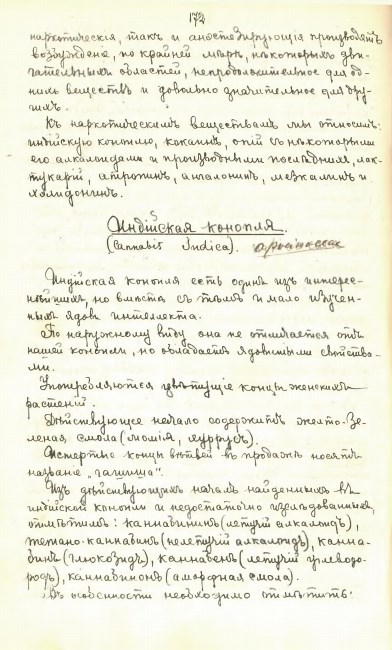 172
наркотическія, такъ и анестезирующія производятъ
возбужденіе, по крайней мѣрѣ, нѣкоторыхъ дви-
гательныхъ областей, непродолжительное для од-
нихъ веществъ и довольно значительное для дру-
гихъ.
Къ наркотическимъ веществамъ мы относимъ:
индійскую коноплю, кокаинъ, опій съ нѣкоторыми
его алкалоидами и производными послѣднихъ, лак-
тукарій, атропинъ, ангалонинъ, мезкалинъ и
хелидонинъ.
Индійская конопля.
(Cannabis Indica).
Индійская конопля есть одинъ изъ интерес-
нѣйшихъ, но вмѣстѣ съ тѣмъ и мало изучен-
ныхъ ядовъ интеллекта.
По наружному виду она не отличается отъ
нашей конопли, но обладаетъ ядовитыми свойства-
ми.
Употребляются цвѣтущіе концы женскихъ
растеній.
Дѣйствующее начало содержитъ желто-зе-
леная смола (момія, чуррусъ).
Истертые концы вѣтвей въ продажѣ носятъ
названіе "гашиша".
Изъ дѣйствующихъ началъ найденныхъ въ
индійской конопли и недостаточно изслѣдованныхъ,
отмѣтимъ: каннабининъ (летучій алкалоидъ),
тетано-каннабинъ (нелетучій алкалоидъ), канна-
бинъ (глюкозидъ), каннабенъ (летучій углеводо-
родъ), каннабинонъ (аморфная смола).
Въ особенности необходимо отмѣтить: